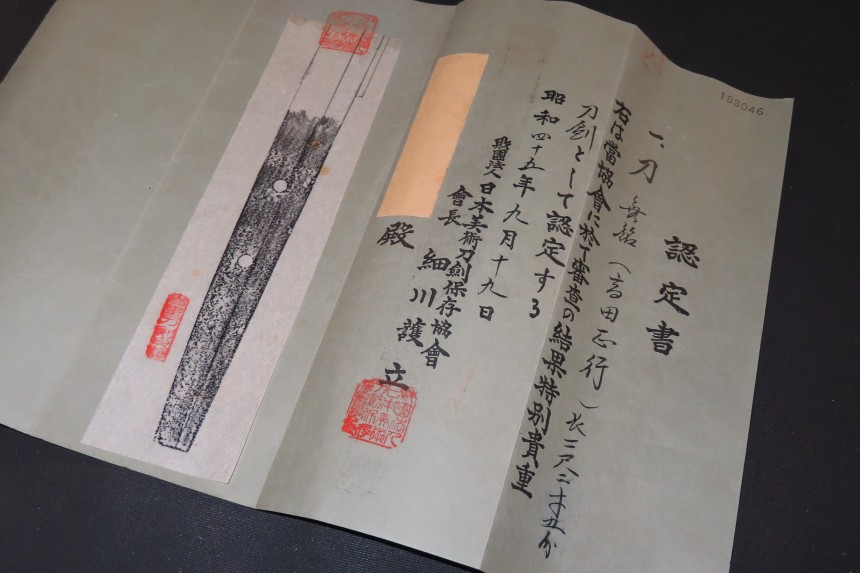 193046
認定書
一、刀 無銘(高田正行)長二尺二寸五分
右は當協會に於て審査の結果特別貴重
刀劍として認定する
昭和四十五年九月十九日
財團法人日本美術刀劍保存協會
會長 細川護立
殿